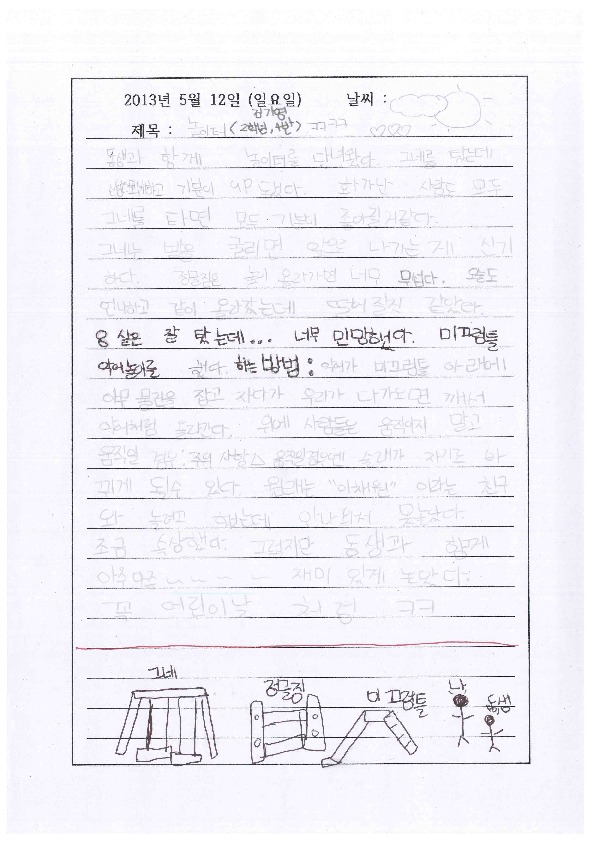 2013년 5월 12일 (일요일) 날씨 :
김가영
제목 : 놀이터 (2학년, 4반) ㄲㅋㅋ
동생과 함께 놀이터를 다녀왔다. 그네를 탔는데
기분이 up 됐다. 화가난 사람도 모두
그네를 타면 모두 기분이 좋아질거같다.
그네는 발을 굴리면 앞으로 나가는게 신기
하다. 정글짐은 높이 올라가면 너무 무섭다. 오늘도
같이 올라갔는데 떨어질것 같았다.
8살은 잘 탔는데... 너무 민망했다. 미끄럼틀
악어놀이를 했다. 하는방법: 악어가 미끄럼틀 아래에
아무 물건을 잡고 자다가 우리가 나가노면 깨서
악어처럼 올라간다. 위에 사람들은 움직이지 말고
움직일 경우, 술래가 자기로 바
뀌게 될수 있다. 원래는 "이채원" 이라는 친구
와 놀려고 했는데 안나와서 못놀았다.
조금 속상했다. 그렇지만 동생과 함께
아주아주 ~ ~ ~ ~ 재미 있게 놀았다.
꼭 어린이날 처럼 ㅋㅋ
그네 정글짐 미끄럼틀 나 동생